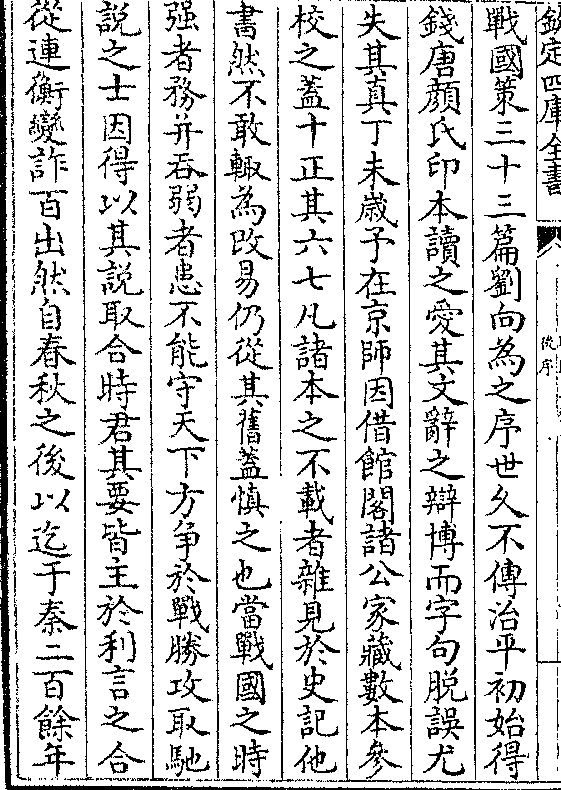 欽定四庫全書
後序
戰國策三十三篇劉向為之序世久不傳治平初始得
錢唐顔氏印本讀之愛其文辭之辯博而字句脱誤尤
失其真丁未歳予在京師因借館閣諸公家藏數本參
校之蓋十正其六七凡諸本之不載者雜見於史記他
書然不敢輙為改易仍從其舊蓋慎之也當戰國之時
强者務并吞弱者患不能守天下方争於戰勝攻取馳
説之士因得以其説取合時君其要皆主於利言之合
從連衡變詐百出然自春秋之後以迄于秦二百餘年